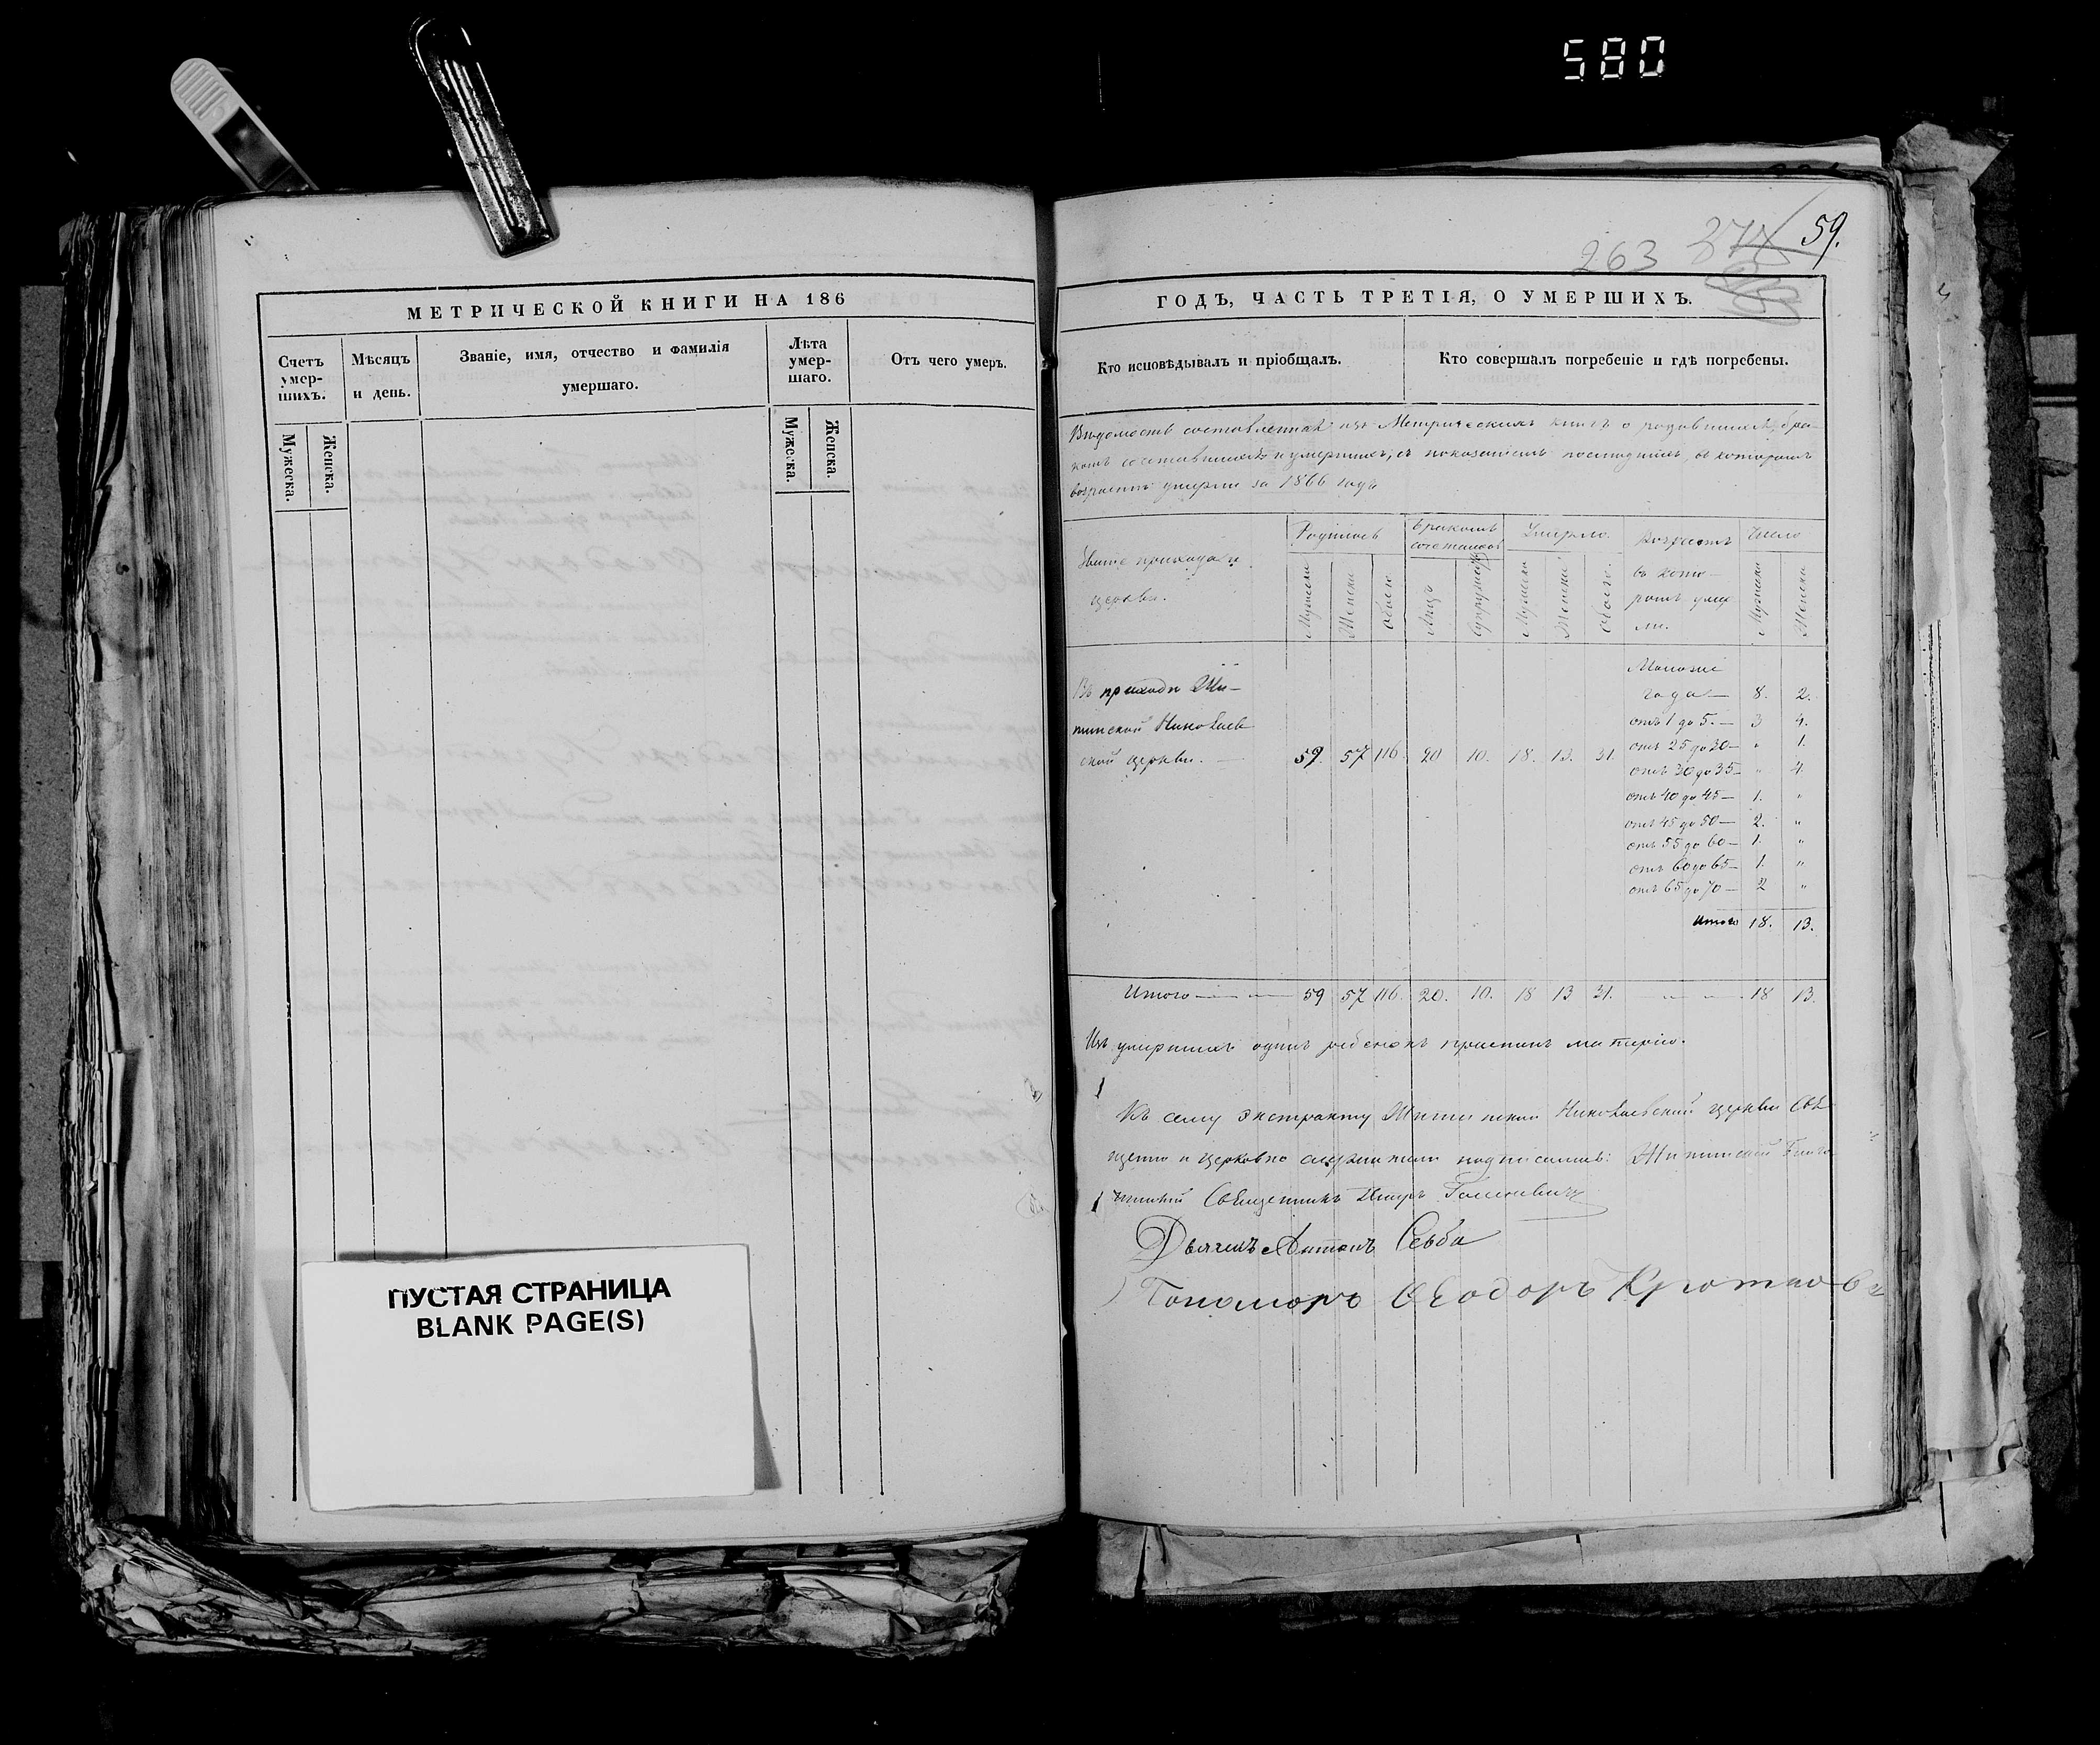 580
МЕТРИЧЕСКОЙ КНИГИ НА 186
Счетъ умер-шихъ.
Мѣсяцъ и день.
Званіе, имя, отчество и фамилія умершаго.
Лѣта умер-шаго.
Отъ чего умеръ.
Мужеска.
Женска.
Мужеска.
Женска.
ПУСТАЯ СТРАНИЦА
BLANK PAGE(S)
263 59.
ГОДЪ, ЧАСТЬ ТРЕТІЯ, О УМЕРШИХЪ.
Кто исповѣдывалъ и пріобщалъ.
Кто совершалъ погребеніе и гдѣ погребены.
Вѣдомость составленная изъ Метрическихъ книгъ о родившихся, бра-
комъ сочетавшихся и умершихъ, съ показаніемъ послѣднихъ, въ которомъ
возрастѣ умерли за 1866 годъ
Званіе прихода и церкви.
Родилось
Мужеска
Женска
Обоего
Бракомъ сочеталось
Лицъ
Супружествъ
Умерло
Мужеска
Женска
Обоего.
Возрастъ въ кото-ромъ умер-ли.
Число
Мужеска
Женска
Въ приходѣ
Николаев-
ской церкви. 59. 57 116. 20 10. 18. 13. 31.
года — 8. 2.
отъ 1 до 5. — 3 4.
отъ 25 до 30 — " 1.
отъ 30 до 35 — " 4.
отъ 40 до 45 — 1. "
отъ 45 до 50 — 2. "
отъ 55 до 60 — 1. "
отъ 60 до 65 — 1. "
отъ 65 до 70 — 2 "
Итого 18. 13.
Итого — — 59 57 116. 20. 10. 18 13 31. — — — 18 13.
Изъ умершихъ одинъ ребенокъ матерію.
Къ сему экстракту Николаевской церкви Свя-
щенно и церковно служители подписались:
Священникъ Петръ
Дьячекъ Антонъ Сѣвба
Пономаръ Ѳеодоръ Кротковъ